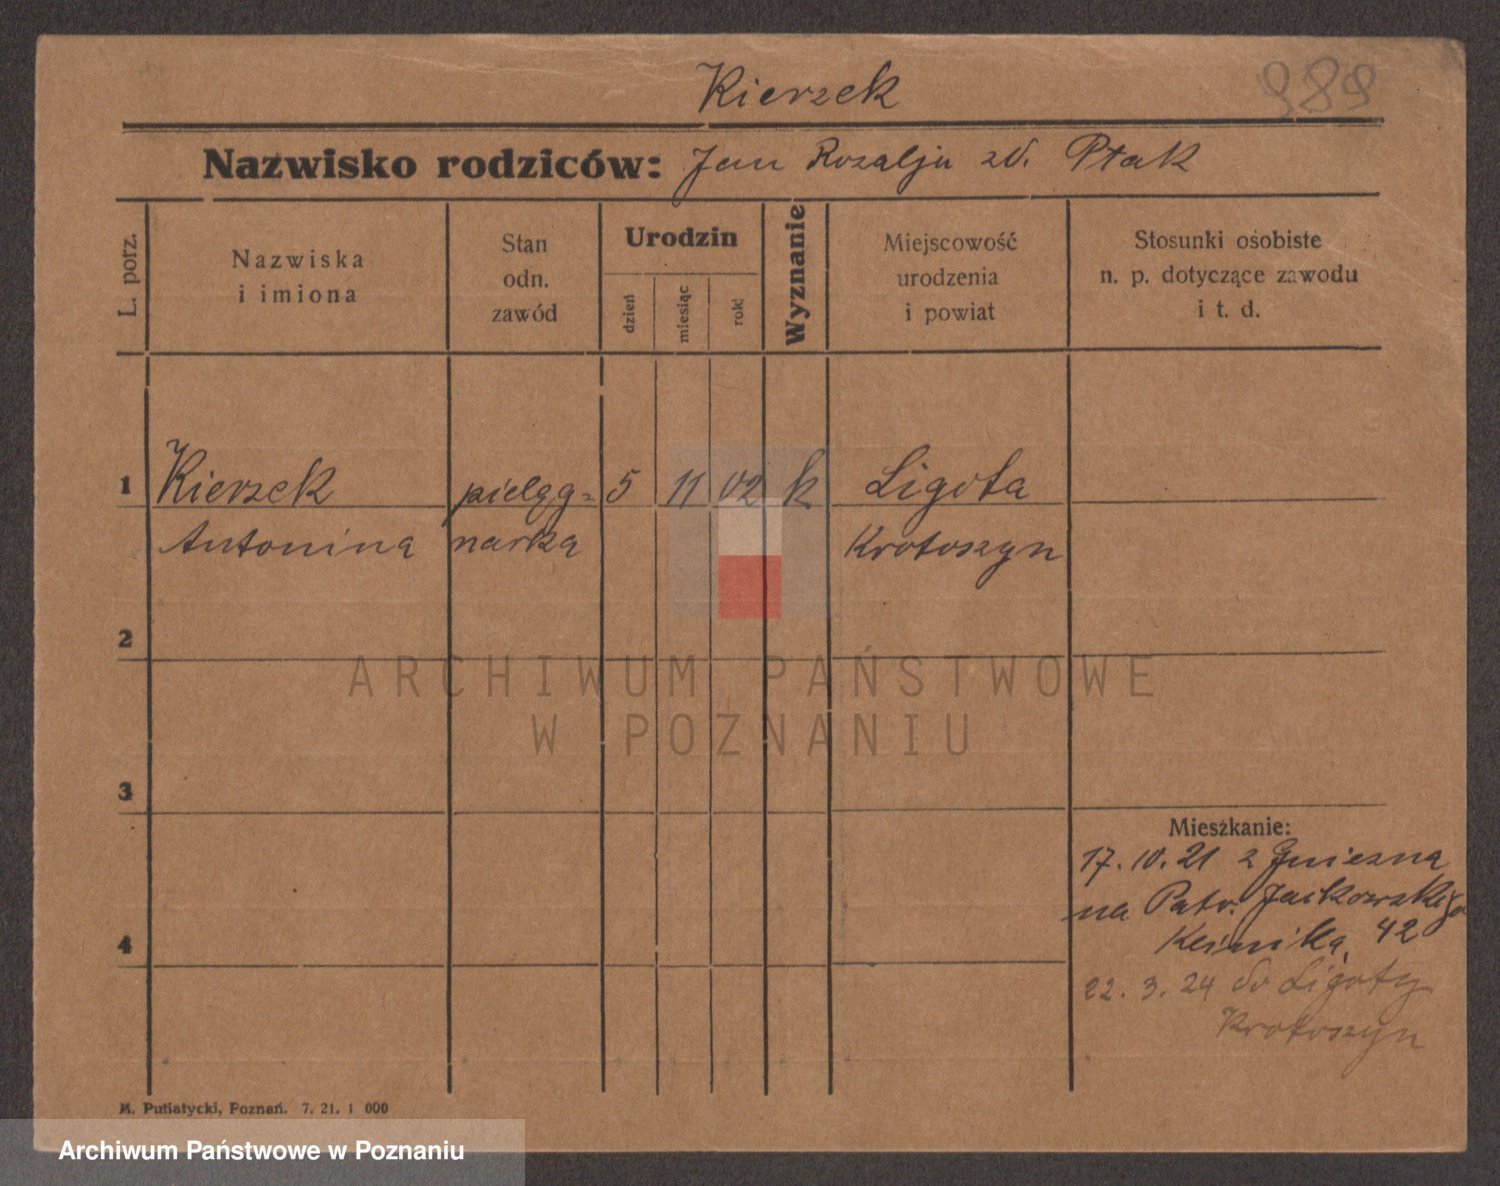 Kierzek
989
Nazwisko rodziców: Jan Rozalja zd. Ptak
L. porz.
Nazwiska
i imiona
Stan
odn.
zawód
Urodzin
dzień
miesiąc
rok
Wyznanie
Miejscowość
urodzenia
i powiat
Stosunki osobiste
n. p. dotyczące zawodu
i t. d.
1 Kierzek pielęg= 5 11 02 k Ligota
Antonina narka Krotoszyn
2
ARCHIWUM PAŃSTWOWE
W POZNANIU
3
Mieszkanie:
17. 10. 21 z Gniezna
na Patr. Jackowskiego
4
Klinika 42
22. 3. 24 do Ligoty
Krotoszyn
M. Putiatycki, Poznań. 7. 21. 1 000
Archiwum Państwowe w Poznaniu